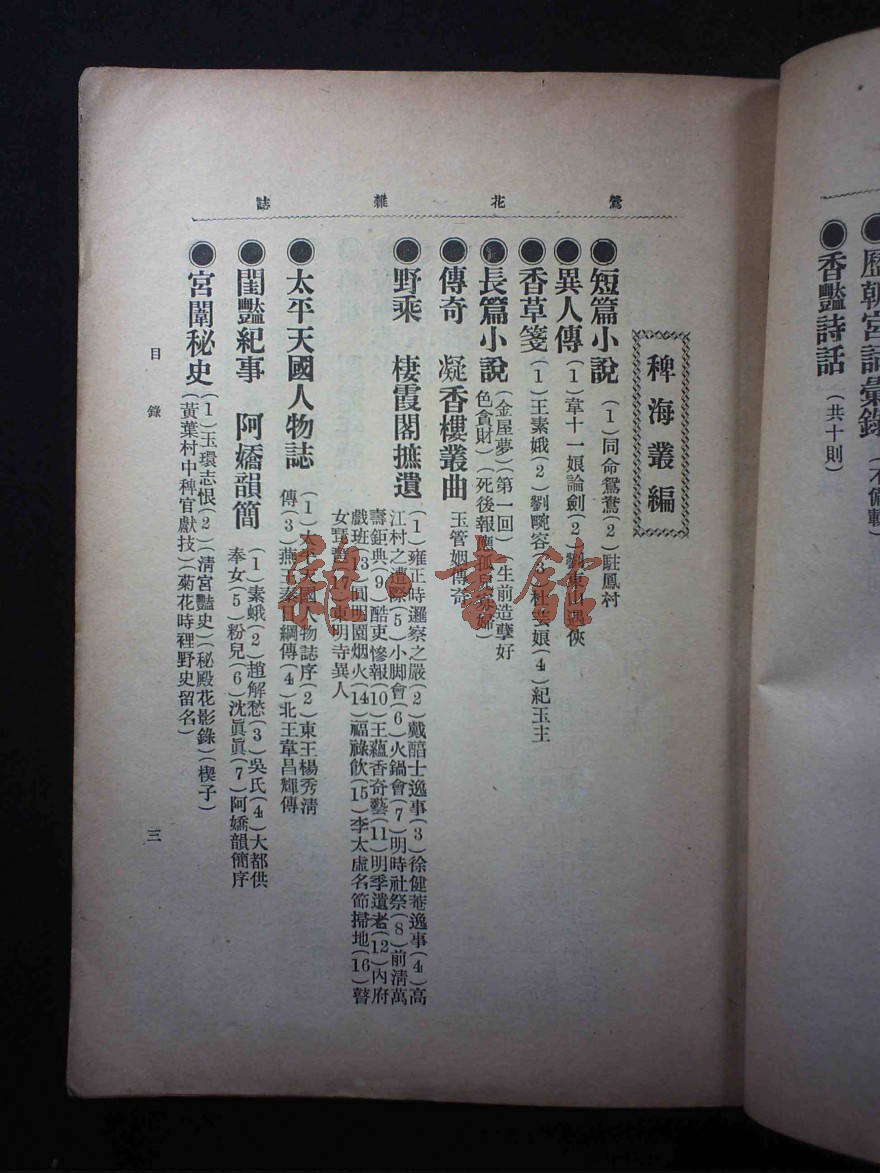 歷朝宮詞彙錄
香豔詩話（共十則）
鶯花雜誌
稗海叢編
短篇小說（1）同命鴛鴦（2）駐鳳村
異人傳（1）韋十一娘論劍（2）劉東山遇俠
香草箋（1）王素娥（2）劉畹容（3）杜芸娘（4）紀玉主
長篇小說（金屋夢）（第一回）（生前造孽好
色貪財）（死後報應孤兒寡婦）
傳奇 凝香樓叢曲 玉管姻傳奇
野乘 棲霞閣摭遺（1）雍正時邏察之嚴（2）戴醅士逸事（3）徐健菴逸事（4）高
江村之遭際（5）小脚會（6）火鍋會（7）明時社祭（8）前清萬
壽鉅典（9）酷吏慘報（10）王蘊香奇藝（11）明季遺老（12）內府
戲班（13）圓明園烟火（14）福祿飲（15）李太虛名節掃地（16）瞽
女（17）東明寺異人
太平天國人物誌（1）太平天國人物誌序（2）東王楊秀清
傳（3）燕王秦日綱傳（4）北王韋昌輝傳
閨豔紀事 阿嬌韻簡（1）素蛾（2）趙解愁（3）吳氏（4）大都供
奉女（5）粉兒（6）沈眞眞（7）阿嬌韻簡序
宮闈秘史（1）玉環志恨（2）（清宮豔史）（秘殿花影錄）（楔子）
（黃葉村中稗官獻技）（菊花時裡野史留名）
目錄
三
龍書館